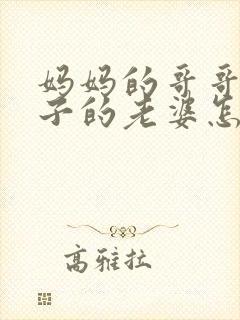 妈妈的哥哥
子的老婆怎
高雅拉